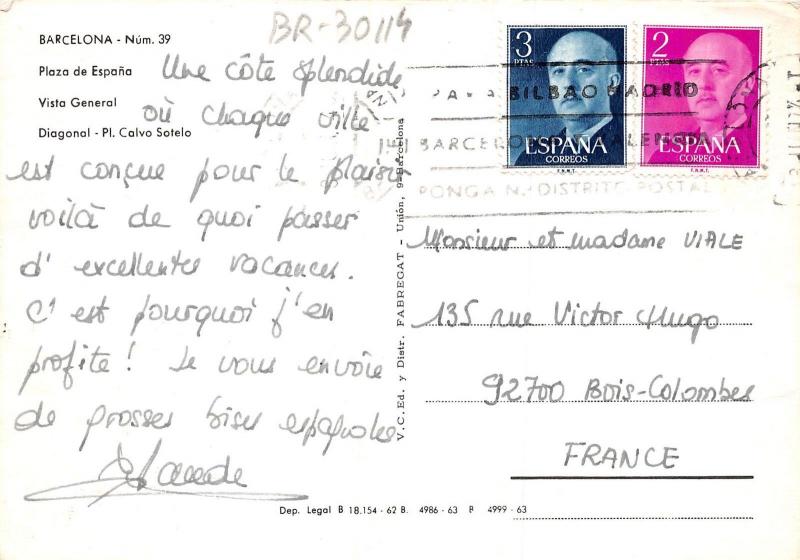 BR-30114
BARCELONA - Núm. 39
Plaza de España
Vista General
Diagonal - Pl. Calvo Sotelo
Une côte splendide
où chaque ville
est conçue pour le plaisir
voilà de quoi passer
d'excellentes vacances.
C'est pourquoi j'en
profite! Je vous envoie
de grosses bises espagnoles
V.C. Ed. y Distr. FABREGAT - Unión, 9 - Barcelona
3
PTAS
ESPAÑA
CORREOS
F.N.M.T.
2
PTAS
ESPAÑA
CORREOS
F.N.M.T.
PARA BILBAO MADRID
BARCELONA VALENCIA
PONGA N.º DISTRITO POSTAL
Monsieur et madame VIALE
135 rue Victor Hugo
92700 Bois-Colombes
FRANCE
Dep. Legal B 18.154 - 62 B. 4986 - 63 B 4999 - 63